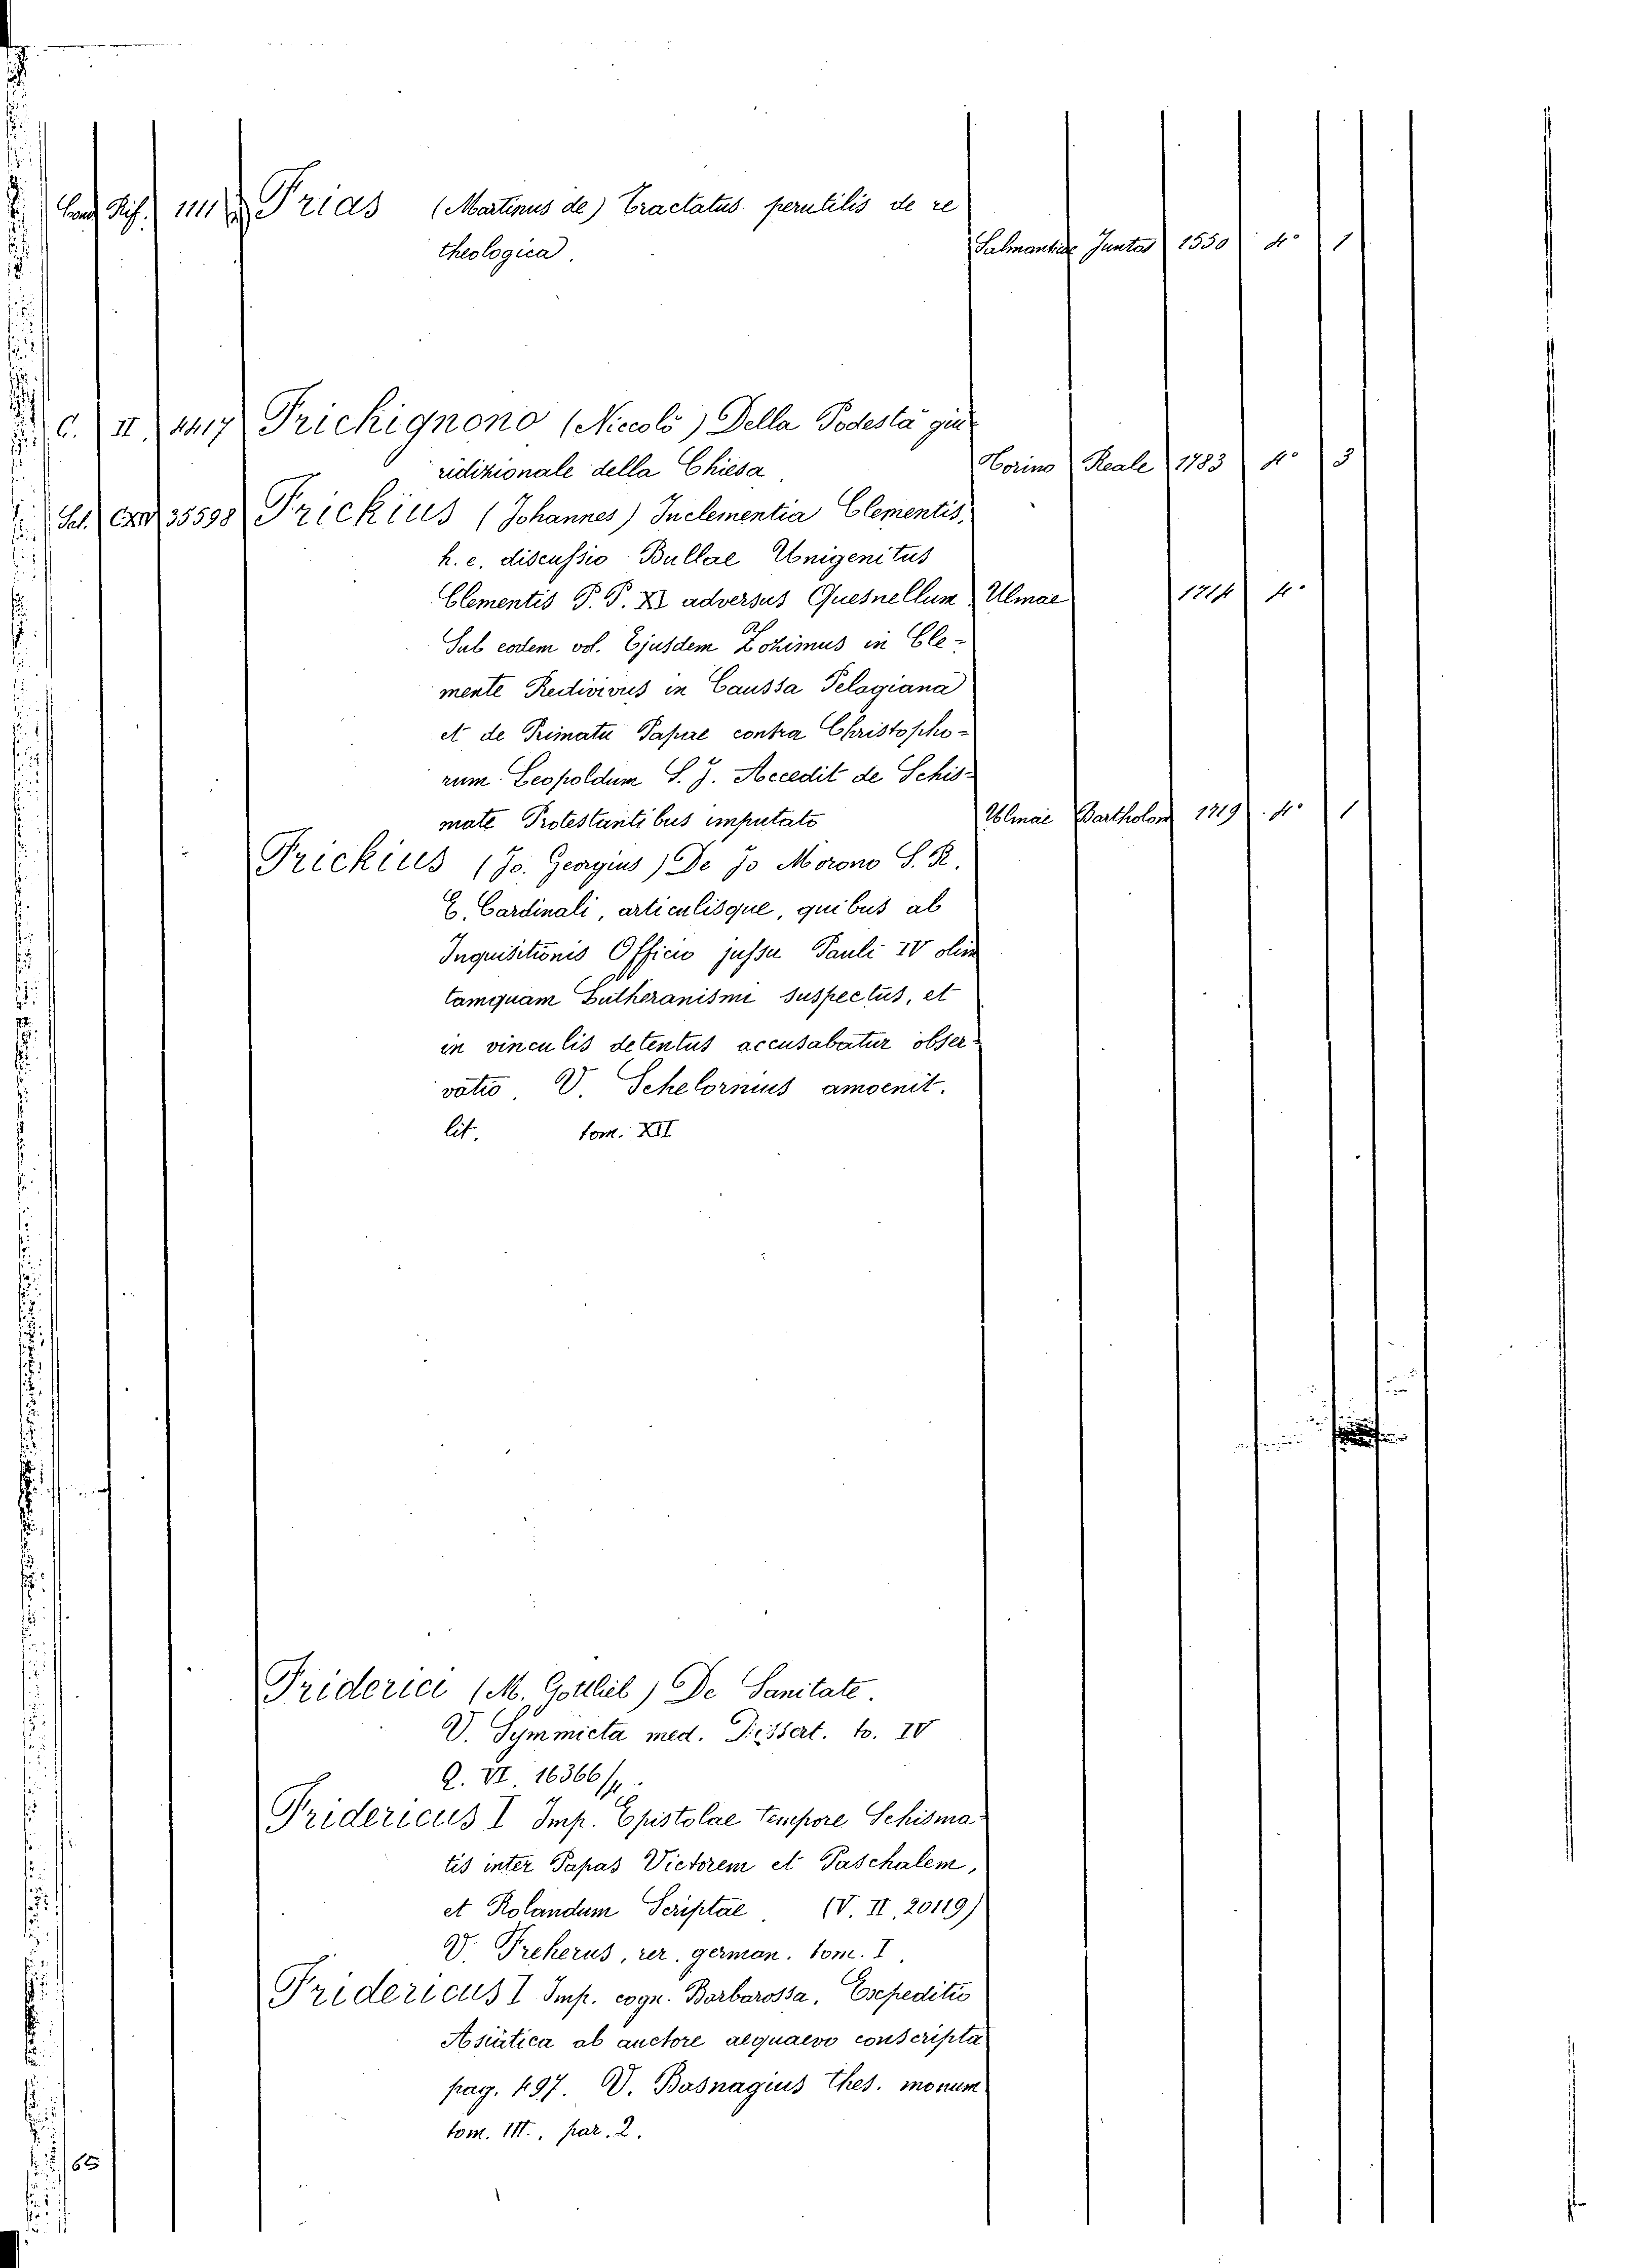 1111 Frias (Martinus de) Tractatus perutilis de re
theologica. Salmanticae Juntas 1550 4° 1
C. II. 4417 Frichignono (Niccolò) Della Podestà giu-
ridizionale della Chiesa. Torino Reale 1783 4° 3
35598 Frickius (Johannes) Inclementia Clementis,
h. e. discussio Bullae Unigenitus
Clementis P. P. XI adversus Quesnellum Ulmae 1714 4°
Sub eodem vol. Ejusdem Zozimus in Cle-
mente Redivivus in Caussa Pelagiana
et de Primatu Papae contra Christopho-
rum Leopoldum S. J. Accedit de Schis-
mate Protestantibus imputato Ulmae Bartholom 1719 4° 1
Frickius (Jo. Georgius) De Jo Morono S. R.
E. Cardinali, articulisque, quibus ab
Inquisitionis Officio jussu Pauli IV olim
tamquam Lutheranismi suspectus, et
in vinculis detentus accusabatur obser-
vatio. V. Schelornius amoenit.
lit. tom. XII
Friderici (M. Gottlieb) De Sanitate.
V. Symmicta med. Dissert. to. IV
Q. VI. 16366/4.
Fridericus I Imp. Epistolae tempore Schisma-
tis inter Papas Victorem et Paschalem,
et Rolandum Scriptae. (V. II. 20119)
V. Freherus, rer. german. tom. I.
Fridericus I Imp. cogn. Barbarossa, Expeditio
Asiatica ab auctore aequaevo conscripta
pag. 497. V. Basnagius Thes. monum
tom. III., par. 2.